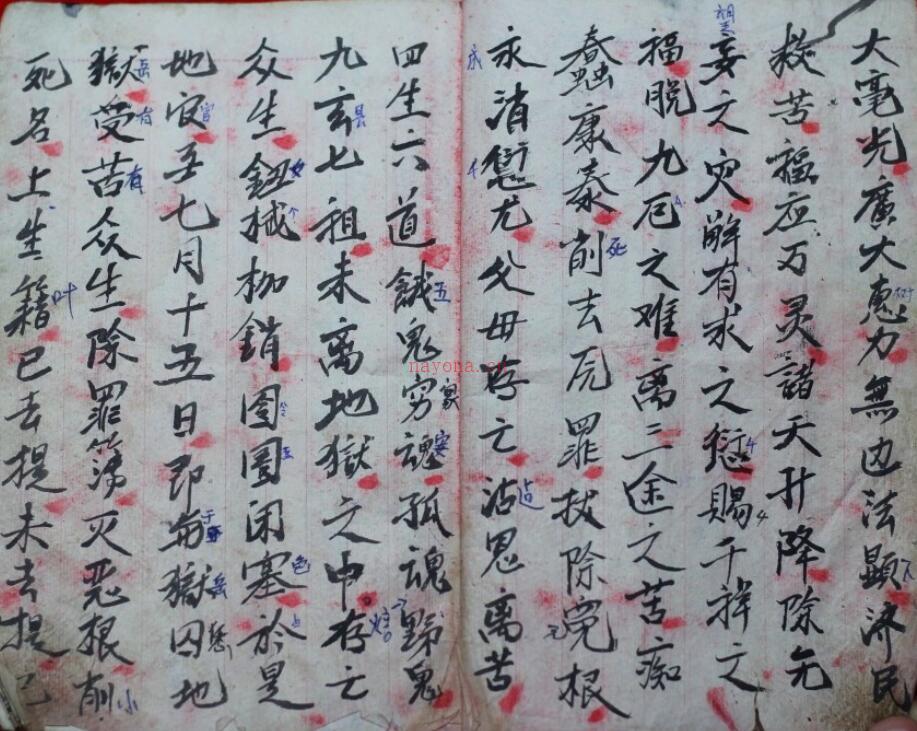 大毫光廣大惠力無边法顕济民
救苦福应万灵諸天升降除无
妄之灾解有求之愆賜千祥之
福脱九厄之难离三途之苦痴
蠢康泰削去厄罪拔除冤根
永消愆尤父母存亡沾恩离苦
四生六道餓鬼穷魂孤魂野鬼
九玄七祖未离地獄之中存亡
众生鈕械枷銷囹圄闭塞於是
地官至七月十五日即每獄囚地
獄受苦众生除罪簿灭恶根削
死名上生籍已去提未去提已
nayona.cn